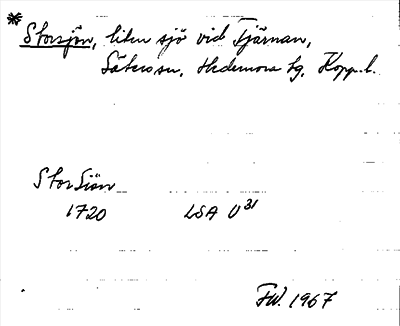 * Storsjön, liten sjö vid Tjärnan,
Säters sn, Hedemora tg, Kopp. l.
Stor Siön
1720 LSA U31
FW. 1967